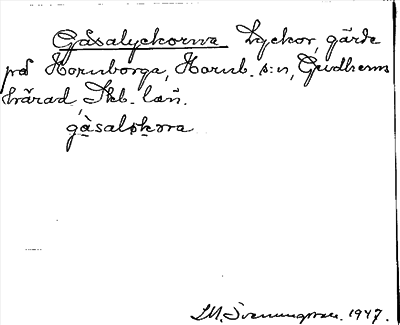 Gåsalyckorna Lyckor, gärde
på Hornborga, Hornb. s:n, Gudhems
härad, Skb. län.
gàsaløkɷra
1947.